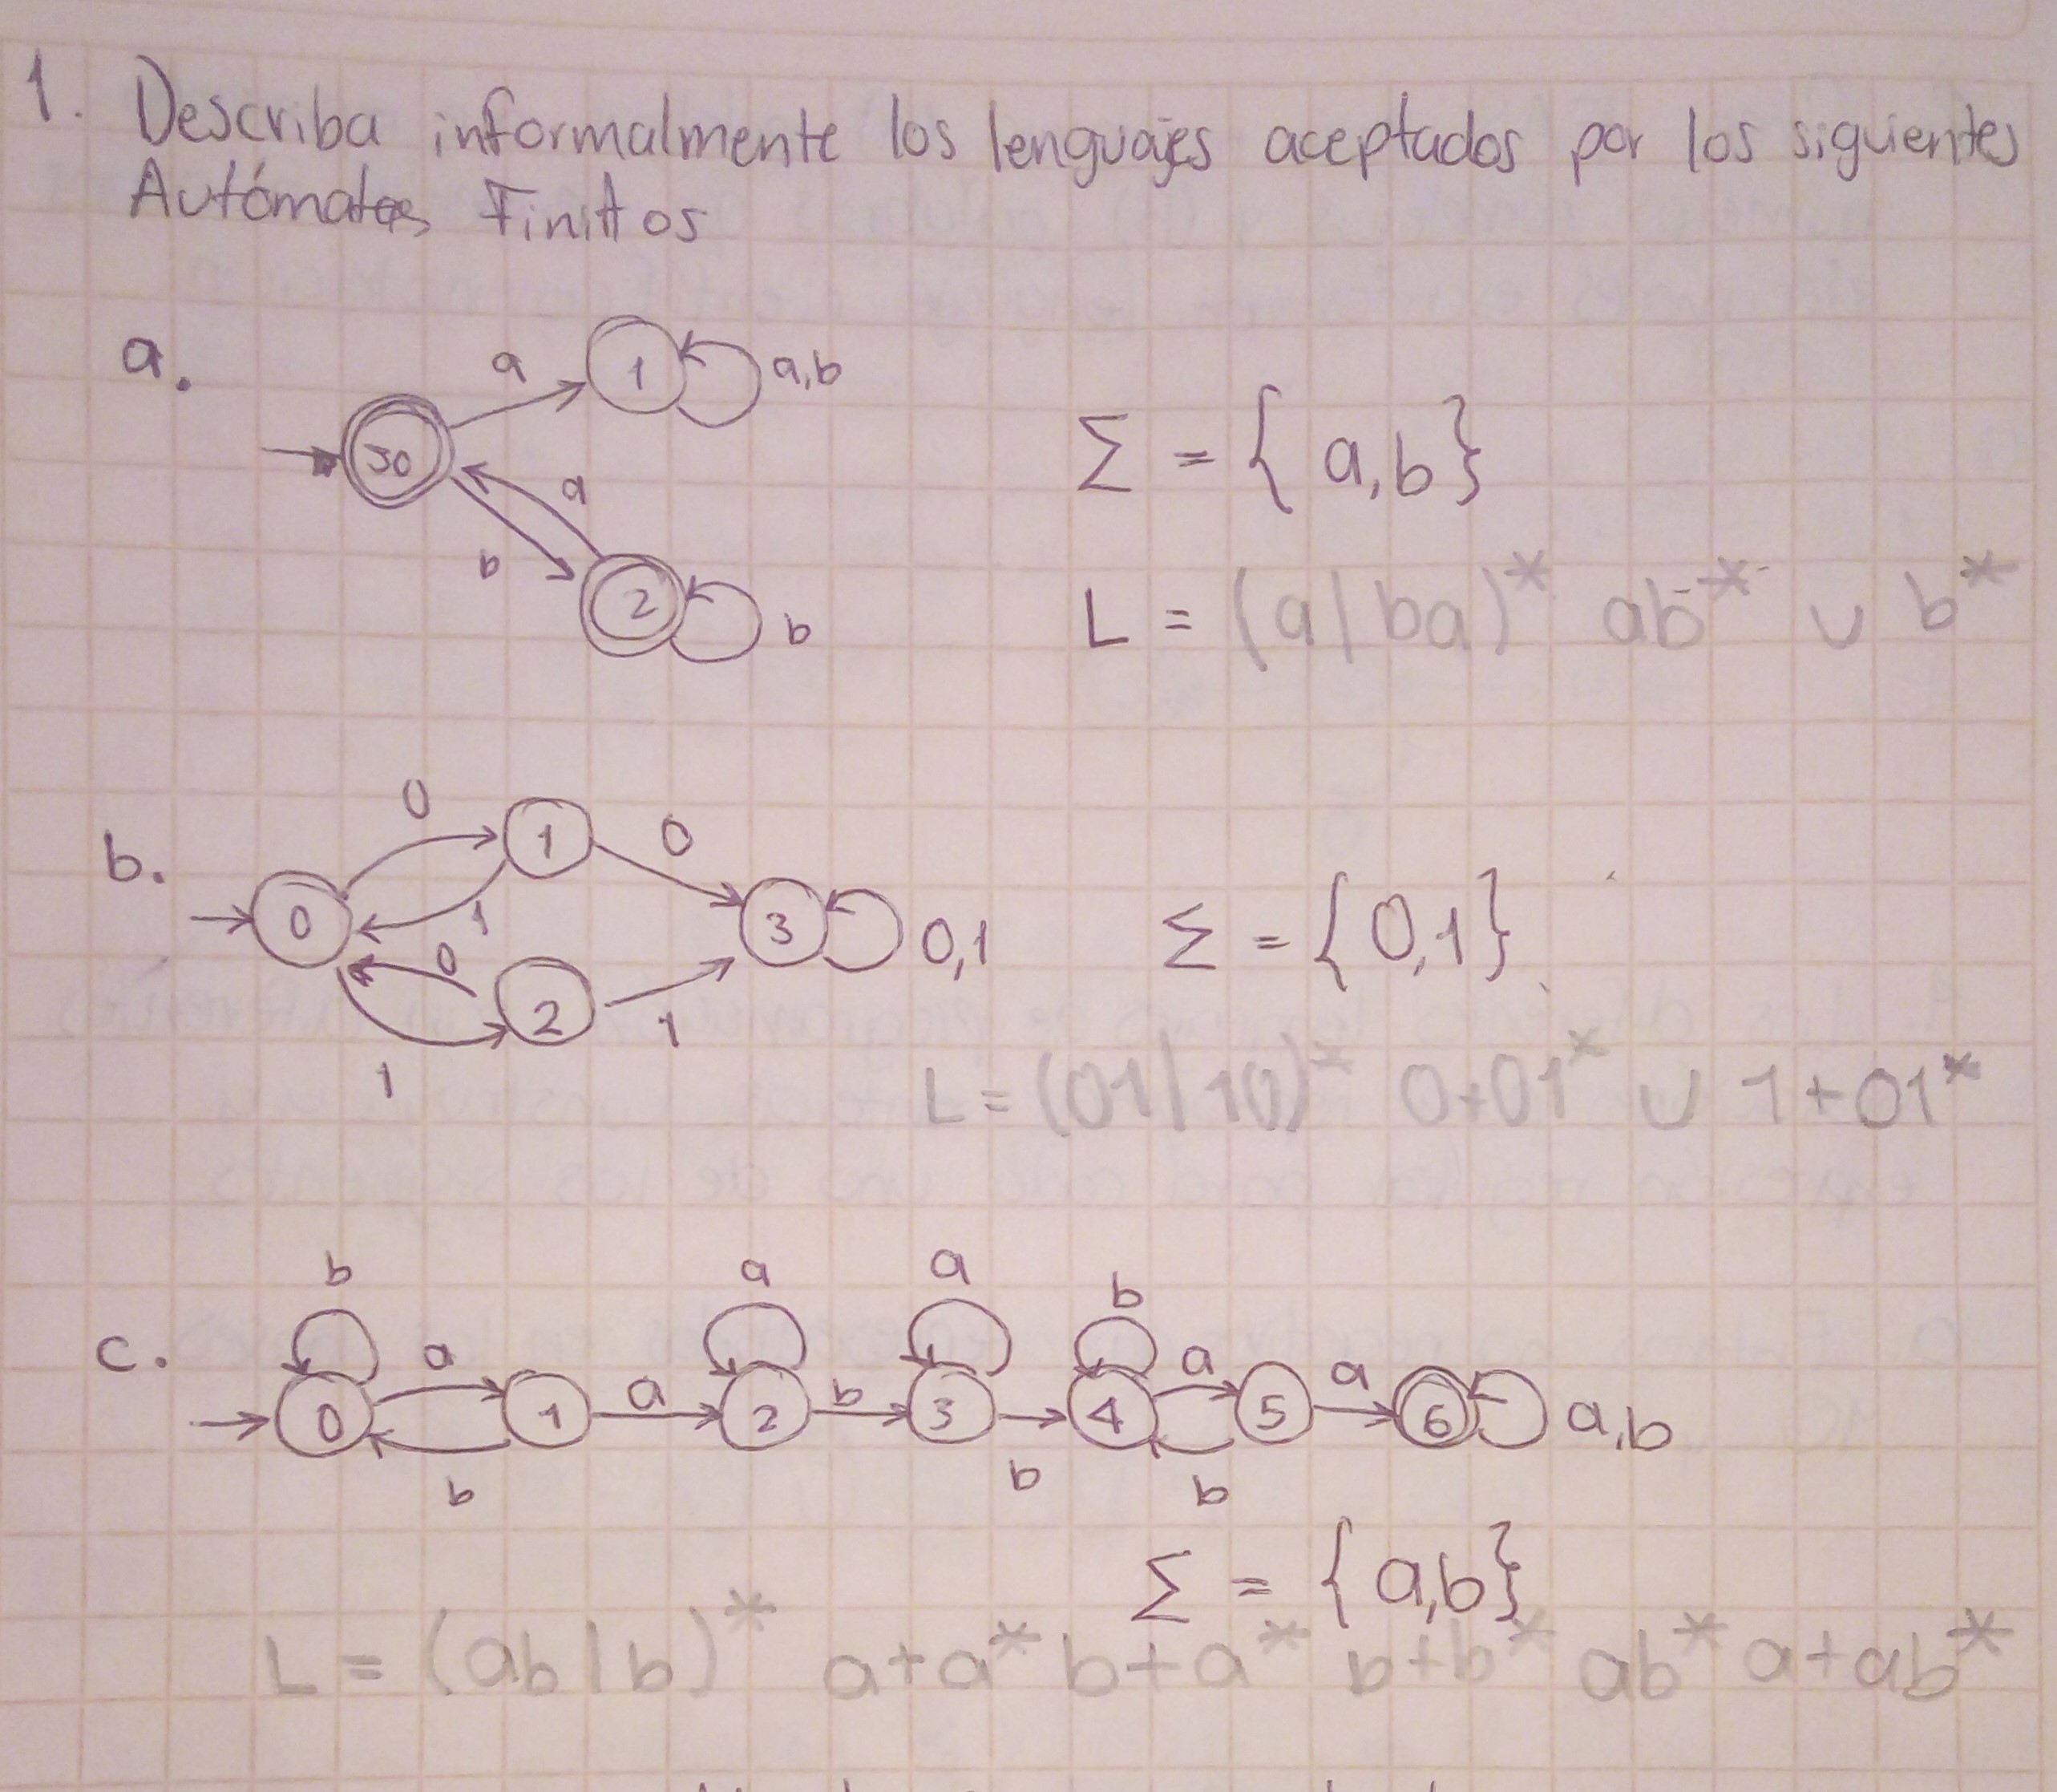 1. Describa informalmente los lenguajes aceptados por los siguientes
Autómatas Finitos
a.
a
1
a,b
30
a
b
2
b
Σ = { a,b}
L = (a|ba)* ab* ∪ b*
b.
0
1
0
0
1
3
0,1
0
2
1
1
Σ = {0,1}
L = (01|10)* 0+01* ∪ 1+01*
c.
b
a
a
b
0
a
1
a
2
b
3
4
a
5
a
6
a,b
b
b
b
Σ = {a,b}
L = (ab|b)* a+a* b+a* b+b* ab* a+ab*